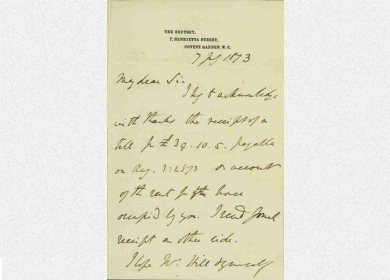 THE RECTORY,
7, HENRIETTA STREET,
COVENT GARDEN, W.C.
7 1873
My dear Sir.
I beg to acknowledge
with thanks the receipt of a
bill for £39.10.5. payable
on Aug. 1873 on account
of the rent for the house
occupied by you. I send formal
receipt on other side.
I hope Mr. Hill